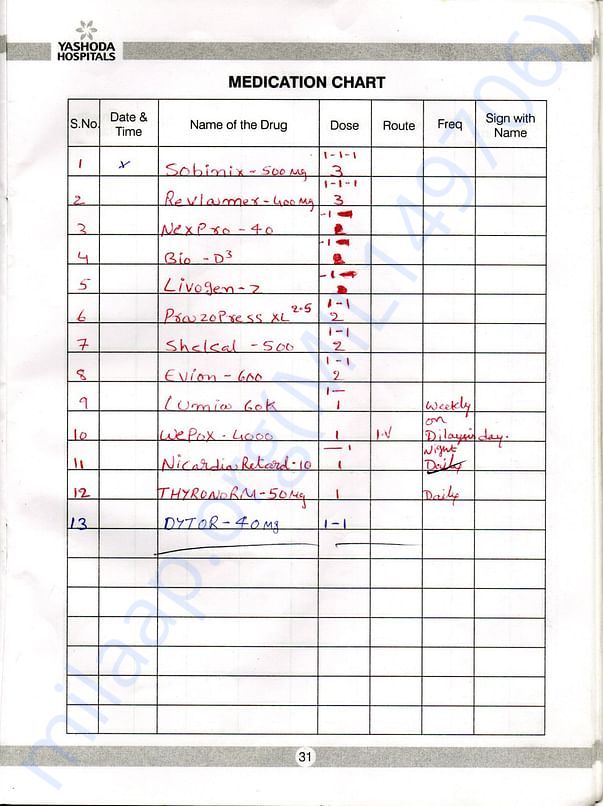 YASHODA
HOSPITALS
MEDICATION CHART
S.No. Date & Time Name of the Drug Dose Route Freq Sign with Name
1 x Sobimix - 500 mg 1-1-1 3
2 Revlaumer - 400 mg 1-1-1 3
3 NexPro - 40 -1
4 Bio - D3 -1
5 Livogen - Z -1
6 PrazoPress XL 2.5 1-1 2
7 Shelcal - 500 1-1 2
8 Evion - 600 1-1 2
9 Lumia 60K 1- 1 Weekly
10 WePox - 4000 1 I.V on Dilaysis day.
11 Nicardia Retard - 10 —1 1 Night Daily
12 THYRONORM - 50 mg 1 Daily
13 DYTOR - 40 mg 1-1
31
milaap.org(MIL149706)